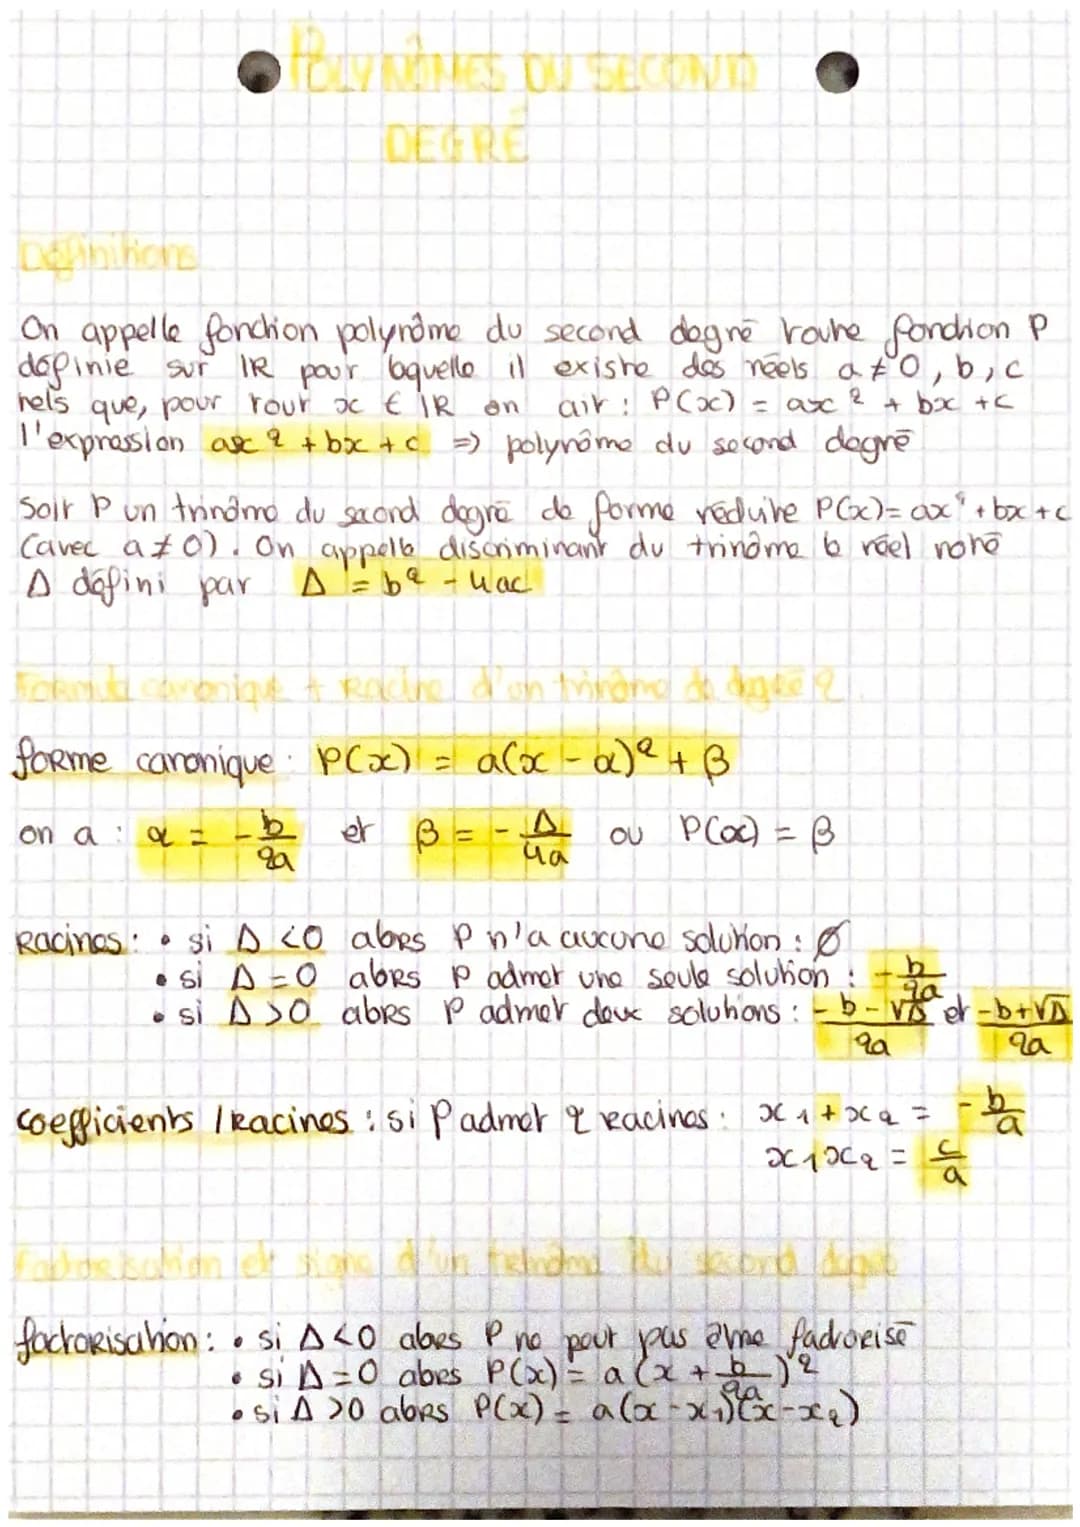 POLYNÔMES DU SECOND
DEGRÉ
Définitions
On appelle fonction polynôme du second degré toute fonction P
définie sur IR pour laquelle il existe des réels a ≠ 0, b, c
tels que, pour tout x ∈ IR on ait : P(x) = ax² + bx + c
l'expression ax² + bx + c => polynôme du second degré
Soit P un trinôme du second degré de forme réduite P(x) = ax² + bx + c
(avec a ≠ 0). On appelle discriminant du trinôme le réel noté
Δ défini par Δ = b² - 4ac
Forme canonique + Racine d'un trinôme de degré 2.
forme canonique : P(x) = a(x - α)² + β
on a : α = -b/2a et β = -Δ/4a ou P(α) = β
Racines : • si Δ < 0 alors P n'a aucune solution : ∅
• si Δ = 0 alors P admet une seule solution : -b/2a
• si Δ > 0 alors P admet deux solutions : -b-√Δ/2a et -b+√Δ/2a
coefficients / Racines : si P admet 2 racines : x₁ + x₂ = -b/a
x₁x₂ = c/a
Factorisation et signe d'un trinôme du second degré
factorisation : • si Δ < 0 alors P ne peut pas être factorisé
• si Δ = 0 alors P(x) = a(x + b/2a)²
• si Δ > 0 alors P(x) = a(x - x₁)(x - x₂)